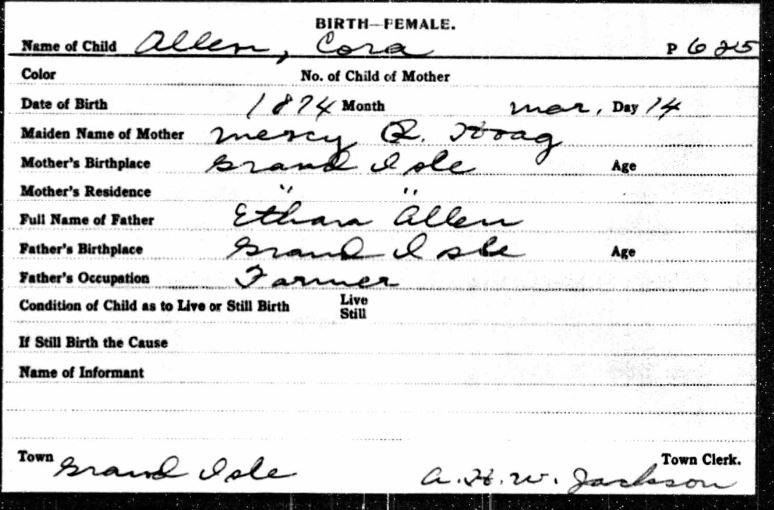 BIRTH—FEMALE.
Name of Child Allen, Cora P 625
Color No. of Child of Mother
Date of Birth 1874 Month Mar. Day 14
Maiden Name of Mother Mercy Q. Hoag
Mother's Birthplace Grand Isle Age
Mother's Residence " "
Full Name of Father Ethan Allen
Father's Birthplace Grand Isle Age
Father's Occupation Farmer
Condition of Child as to Live or Still Birth Live Still
If Still Birth the Cause
Name of Informant
Town Grand Isle A. H. W. Jackson Town Clerk.